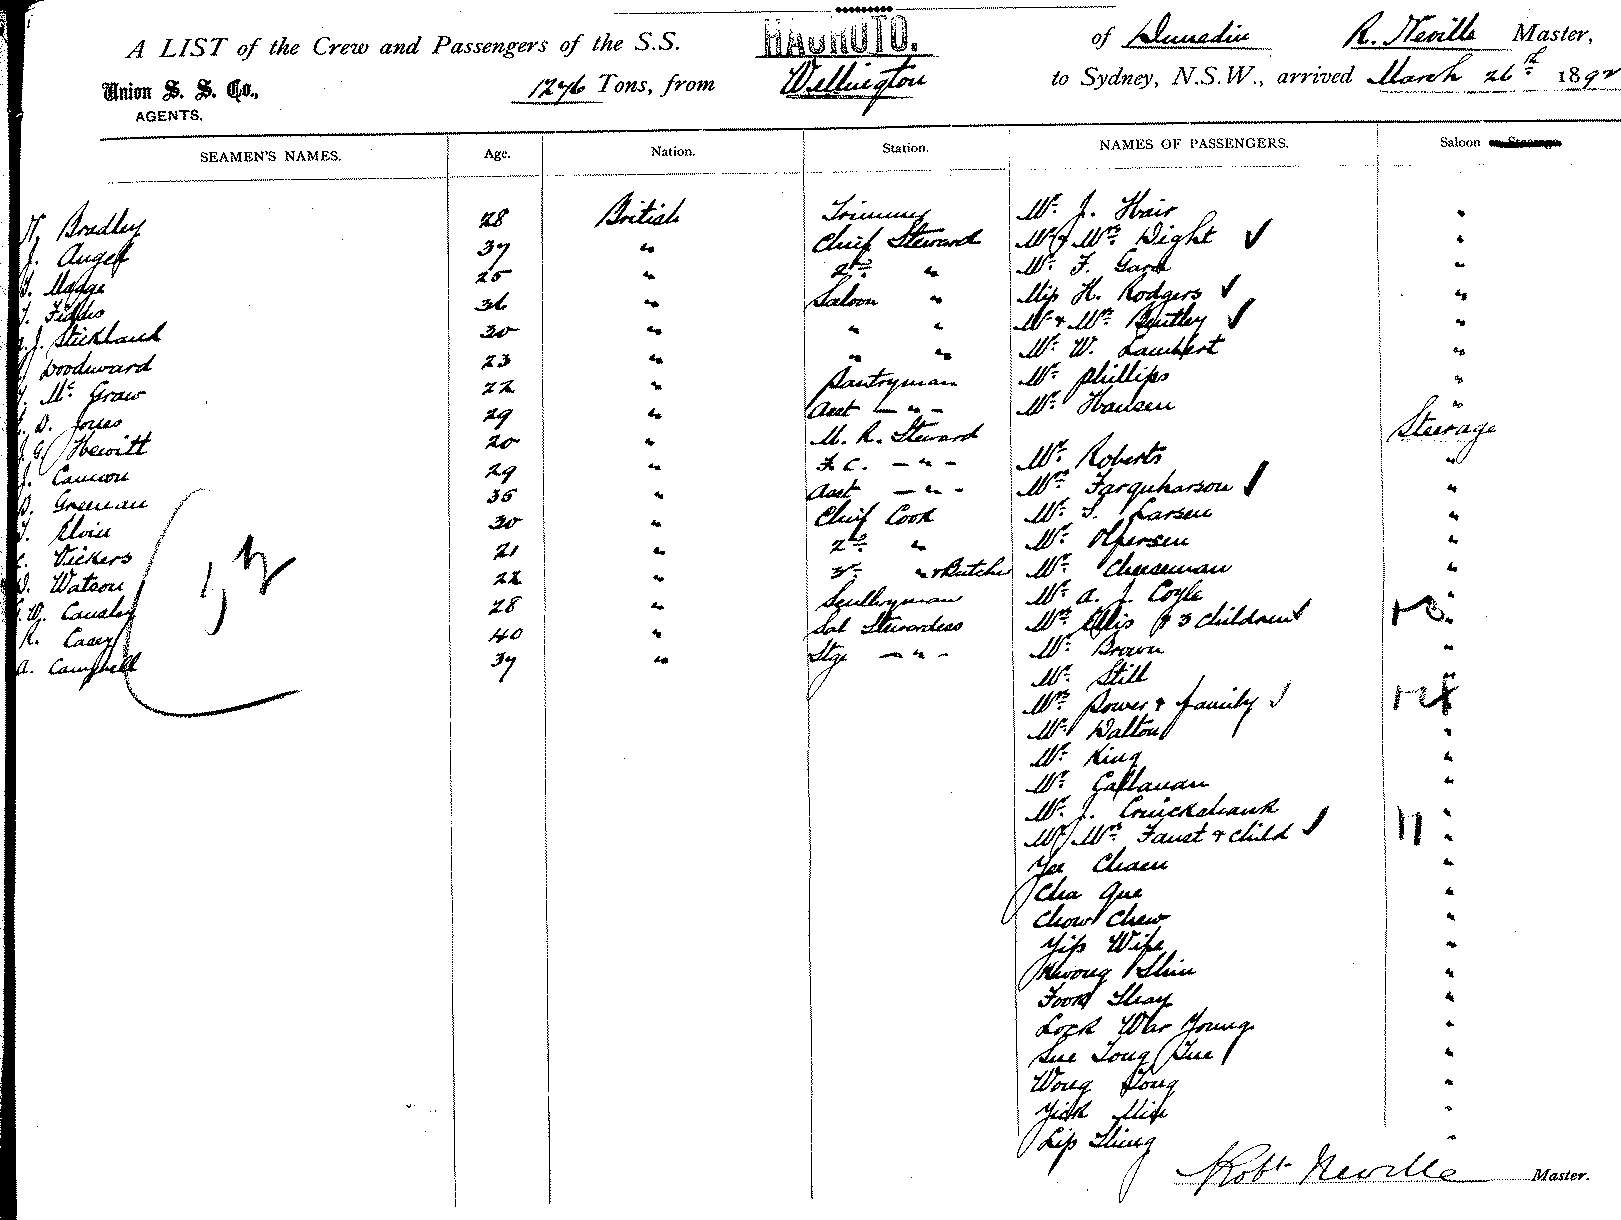 A LIST of the Crew and Passengers of the S.S. HAUROTO. of Dunedin R. Neville Master,
Union S. S. Co., 1276 Tons, from Wellington to Sydney, N.S.W., arrived March 26th 1892
AGENTS.
SEAMEN'S NAMES. Age. Nation. Station. NAMES OF PASSENGERS. Saloon or Steerage
Bradley 28 British Trimmer Mr. J. Hair "
J. Angel 37 " Chief Steward Mr & Mrs Dight "
25 " 2nd " Mr. F. Gard "
36 " Saloon " Miss H. Rodgers "
J. Stickland 30 " " " Mr & Mrs. Bentley "
Woodward 23 " " " Mr. W. Lambert "
Mc Graw 22 " Pantryman Mr. Phillips "
D. Jones 29 " Asst — " — Mr. Hansen "
Hewitt 20 " M. R. Steward Steerage
J. Cannon 29 " F. C. — " — Mr. Roberts "
Greenan 35 " Asst — " — Mrs Farquharson "
Elvin 30 " Chief Cook Mr. Larsen "
Vickers 21 " 2nd " Mr. "
D. Watson 22 " 3rd " & Butcher Mr. Cheeseman "
W. Causley 28 " Scullryman Mr. A. J. Coyle "
K. Casey 40 " Sal Stewardess Mrs Ellis & 3 children "
A. Campbell 37 " Stge — " — Mr. Brown "
Mr. Still "
Mrs Power & family "
Mr. Dalton "
Mr. King "
Mr. Callanan "
Mr. J. Cruickshank "
Mr & Mrs. Faust & child "
Yee Chaen "
Cha Que "
Chow Chew "
Yip Wife "
Kwong Shin "
Foon Shay "
Lock War Young "
Sue Tong Sue "
Wong Tong "
Yick "
Lip Shing "
Robt Neville Master.